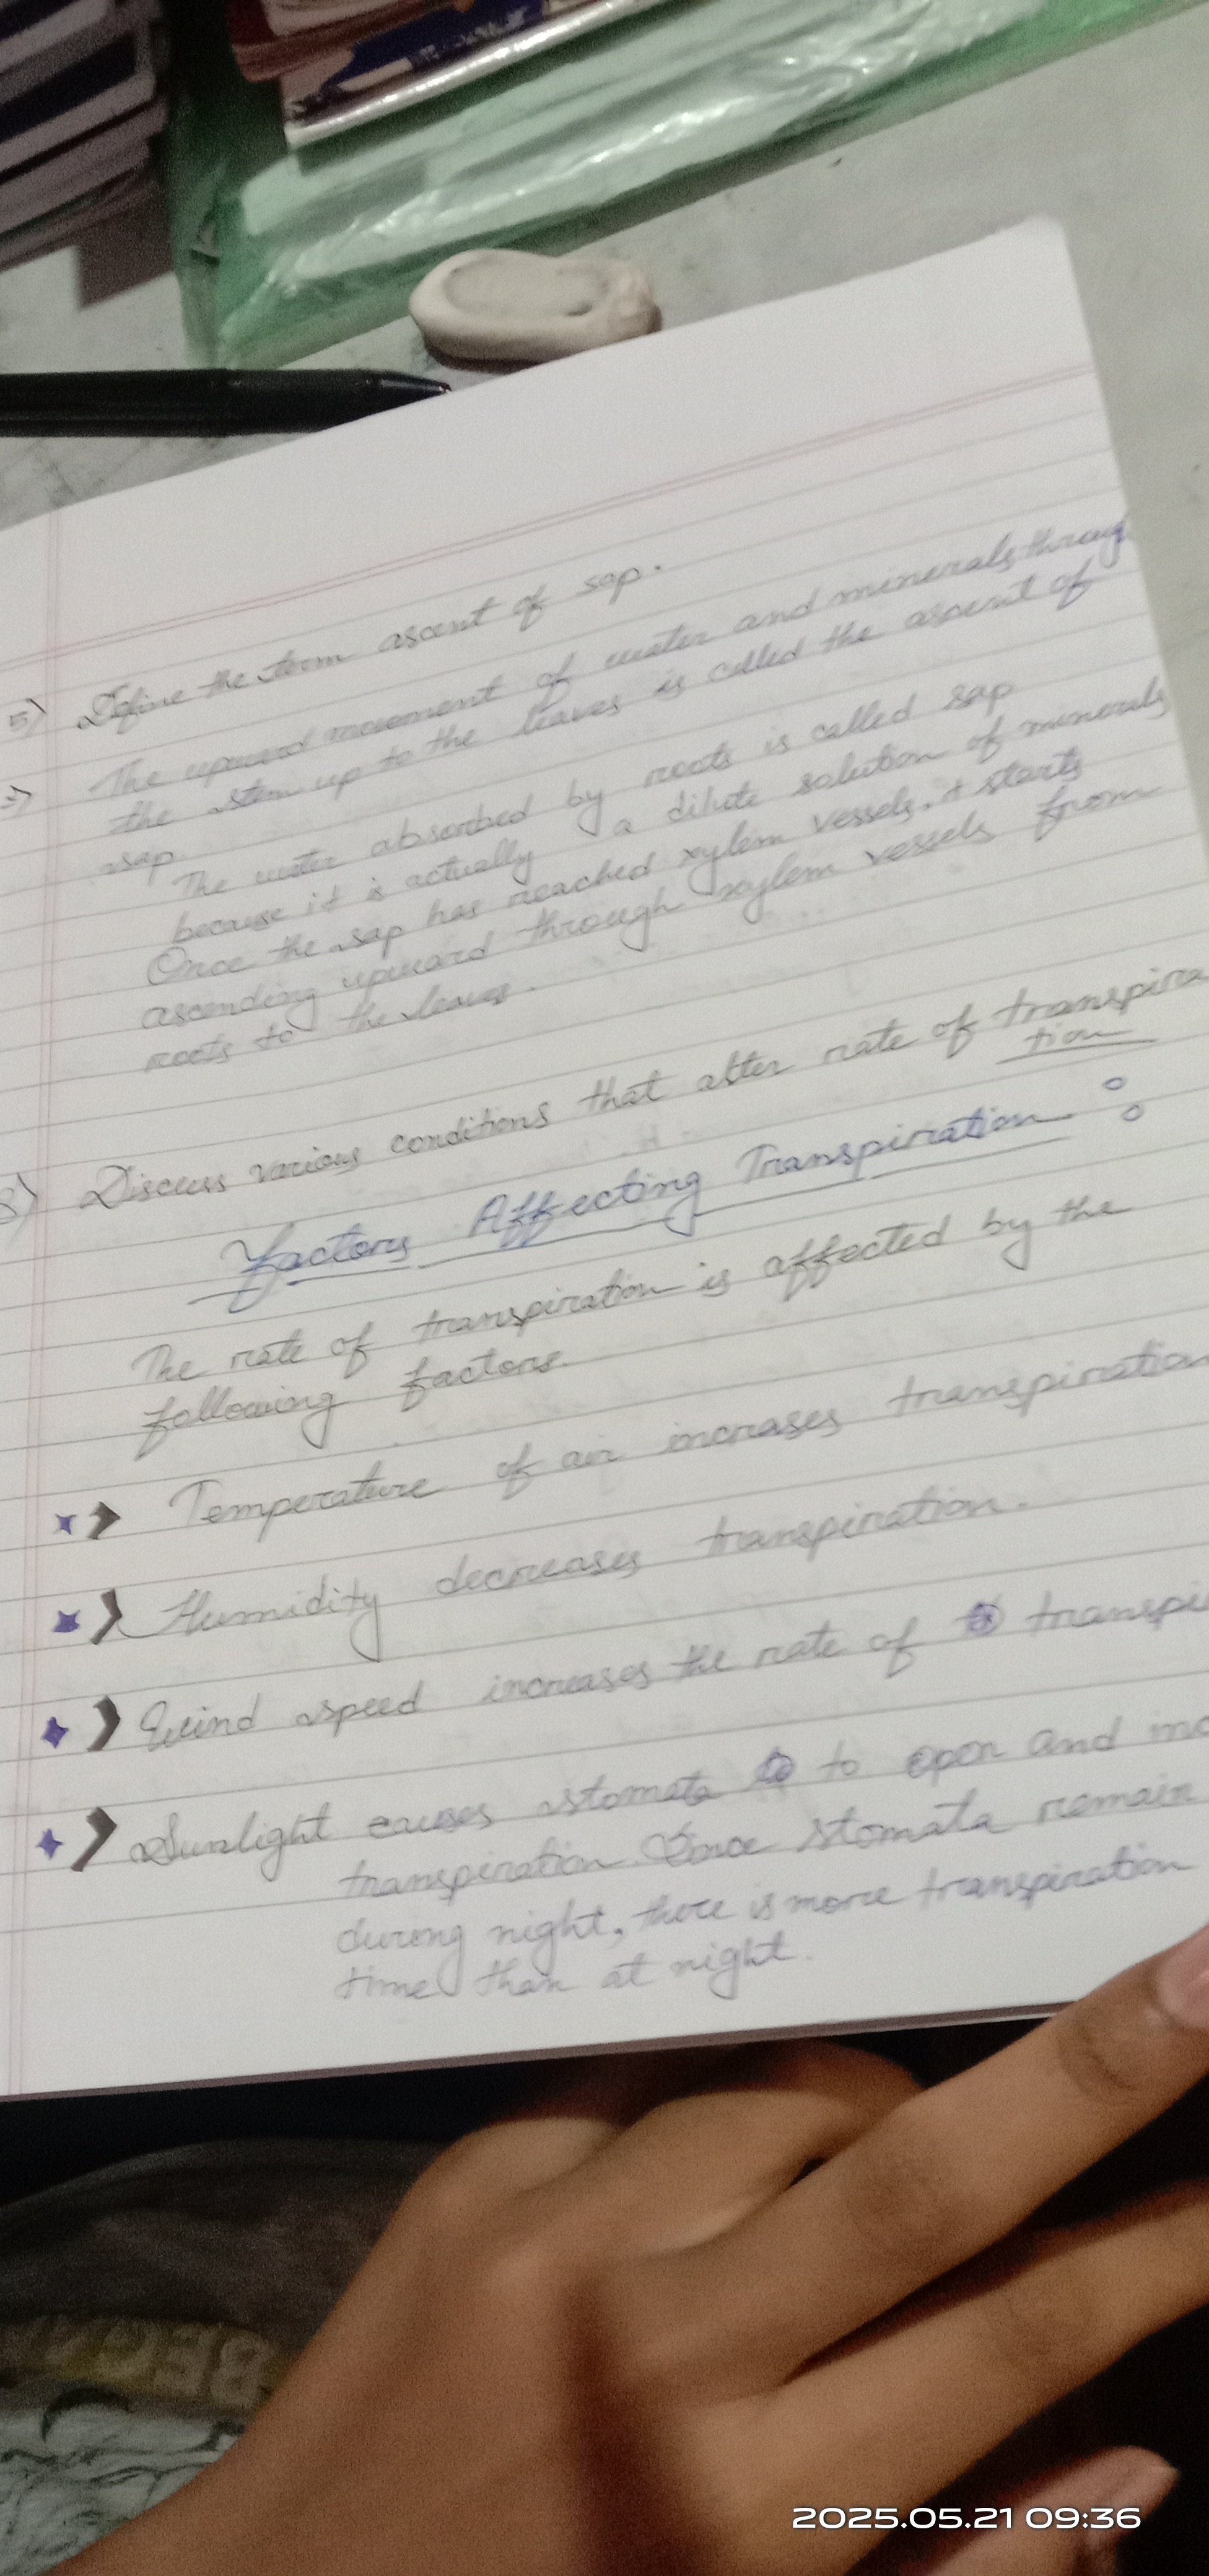 5) Define the term ascent of sap.
The upward movement of water and minerals throug
the stem up to the leaves is called the ascent of
sap.
The water absorbed by roots is called sap
because it is actually a dilute solution of minerals
Once the sap has reached xylem vessels, it starts
ascending upward through xylem vessels from
roots to the leaves.
8) Discuss various conditions that alter rate of transpira
tion
Factors Affecting Transpiration :
The rate of transpiration is affected by the
following factors.
Temperature of air increases transpiration
Humidity decreases transpiration.
Wind speed increases the rate of transpi
Sunlight causes stomata to open and mo
transpiration. Since stomata remain
during night, there is more transpiration
time than at night.
2025.05.21 09:36